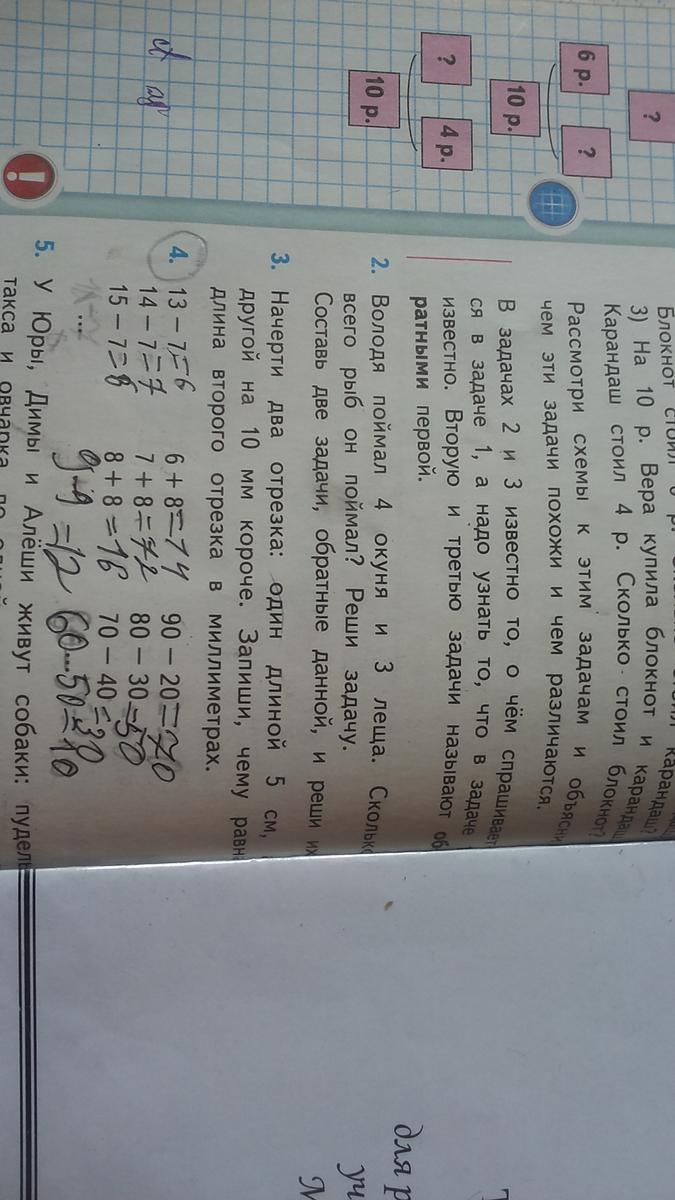 ?
6 р. ?
10 р.
? 4 р.
10 р.
3) На 10 р. Вера купила блокнот и
Карандаш стоил 4 р. Сколько стоил блокнот?
Рассмотри схемы к этим задачам и объясни
чем эти задачи похожи и чем различаются.
В задачах 2 и 3 известно то, о чём спрашивает
ся в задаче 1, а надо узнать то, что в задаче
известно. Вторую и третью задачи называют об
ратными первой.
2. Володя поймал 4 окуня и 3 леща. Скольк
всего рыб он поймал? Реши задачу.
Составь две задачи, обратные данной, и реши их
3. Начерти два отрезка: один длиной 5 см,
другой на 10 мм короче. Запиши, чему равн
длина второго отрезка в миллиметрах.
4. 13 − 7=6 6 + 8=14 90 − 20=70
14 − 7=7 7 + 8=12 80 − 30=50
15 − 7=8 8 + 8=16 70 − 40=30
... =12 60...50=10
!
5. У Юры, Димы и Алёши живут собаки: пудель
такса и овчарка
для р
уч